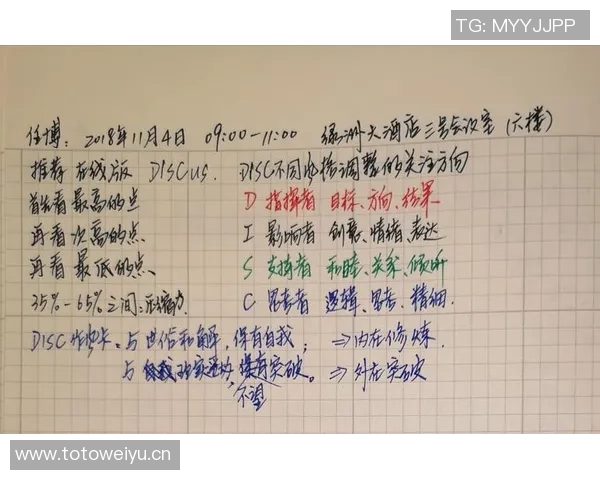 TG: MYYJJPP
任博: 2018年11月4日 09:00-11:00 绿洲大酒店三号会议室(六楼)
推荐在线版 DISCUS. DISC不同性格调整的关注方向
首先看最高的点 D 指挥者 目标、方向、结果
再看次高的点、 I 影响者 创意、情绪、表达
再看最低的点、 S 支持者 和睦、关系、倾听
35%-65%之间: C 思考者 逻辑、思考、精细.
DISC 与世俗和解,保有自我; ⇒内在修炼
与 突破。⇒外在突破
不望
www.totoweiyu.cn